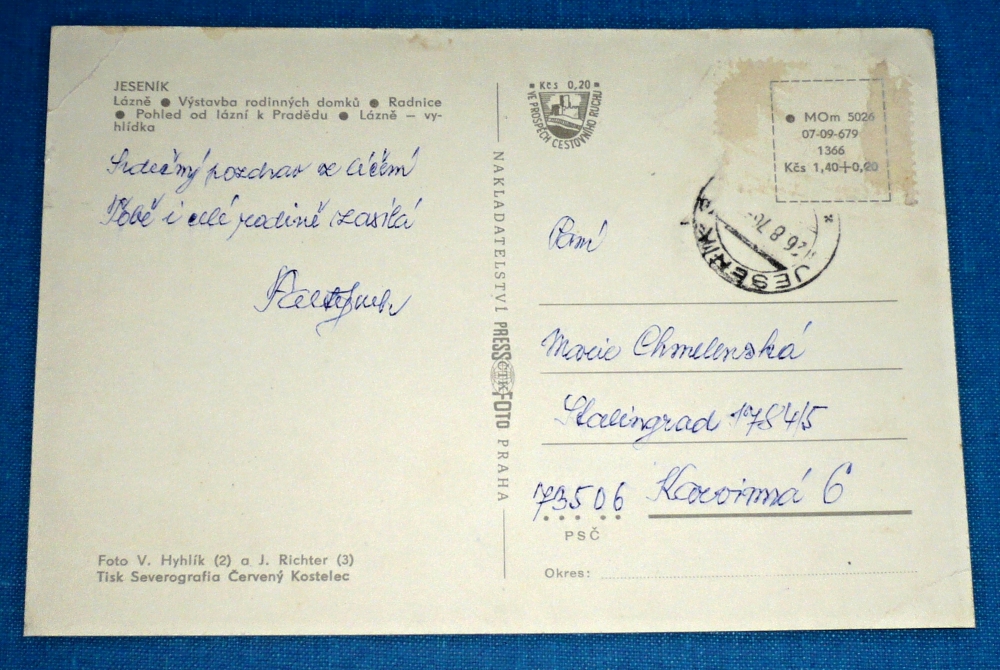 JESENÍK
Lázně ● Výstavba rodinných domků ● Radnice
● Pohled od lázní k Pradědu ● Lázně – vy-
hlídka
Srdečný pozdrav ze cičení
Tobě i celé rodině zasílá
Foto V. Hyhlík (2) a J. Richter (3)
Tisk Severografia Červený Kostelec
NAKLADATELSTVÍ PRESSFOTO PRAHA
ČTK
Kčs 0,20
VE PROSPĚCH CESTOVNÍHO RUCHU
● MOm 5026
07-09-679
1366
Kčs 1,40+0,20
26 8 70
JESENÍK 1
Paní
Marie Chmelenská
Stalingrad 1784/5
73506 Karviná 6
PSČ
Okres: